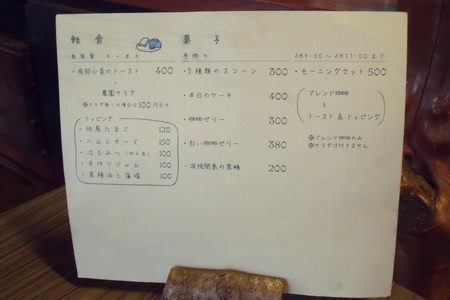 軽食
自家製 トースト
・南部小麦のトースト 400
+
農園サラダ
※サラダ無しの場合は100円引き
トッピング
・地鳥たまご 120
・ハムとチーズ 150
・はちみつ 100
・手作りジャム 100
・菜種油と藻塩 100
菓子
手作り
・2種類のスコーン 300
・本日のケーキ 400
・珈琲ゼリー 300
・白い珈琲ゼリー 380
・波照間島の黒糖 200
AM9:00 ～ AM11:00まで
・モーニングセット 500
ブレンド珈琲
と
トースト & トッピング
※ブレンド珈琲のみ
※サラダは付きません